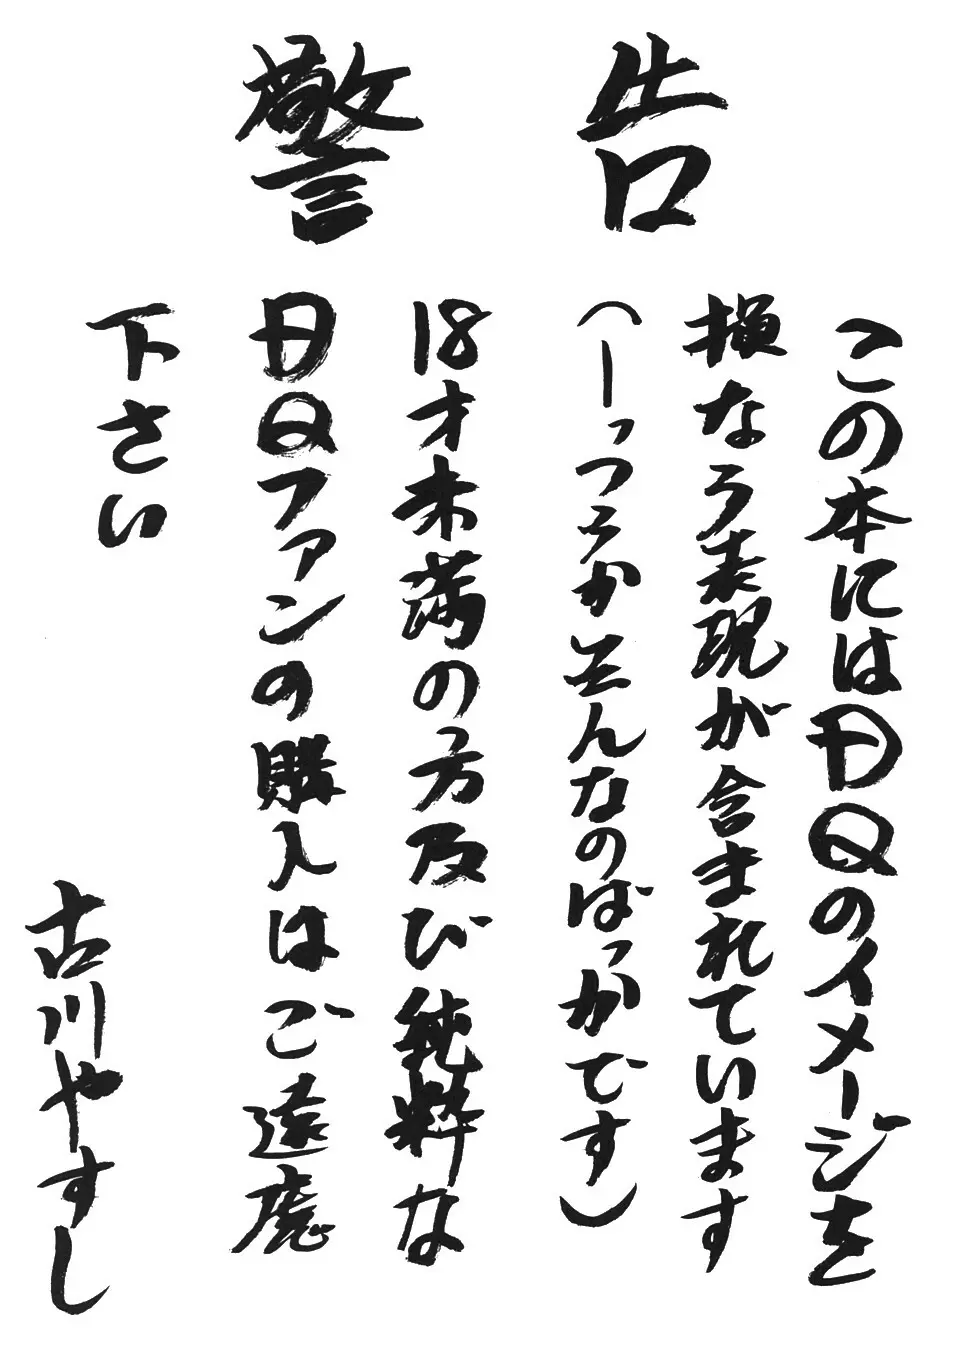 警告
この本にはDQのイメージを
損なう表現が含まれています
（ーっつうかそんなのばっかです）
18才未満の方及び純粋な
DQファンの購入はご遠慮
下さい
古川やすし